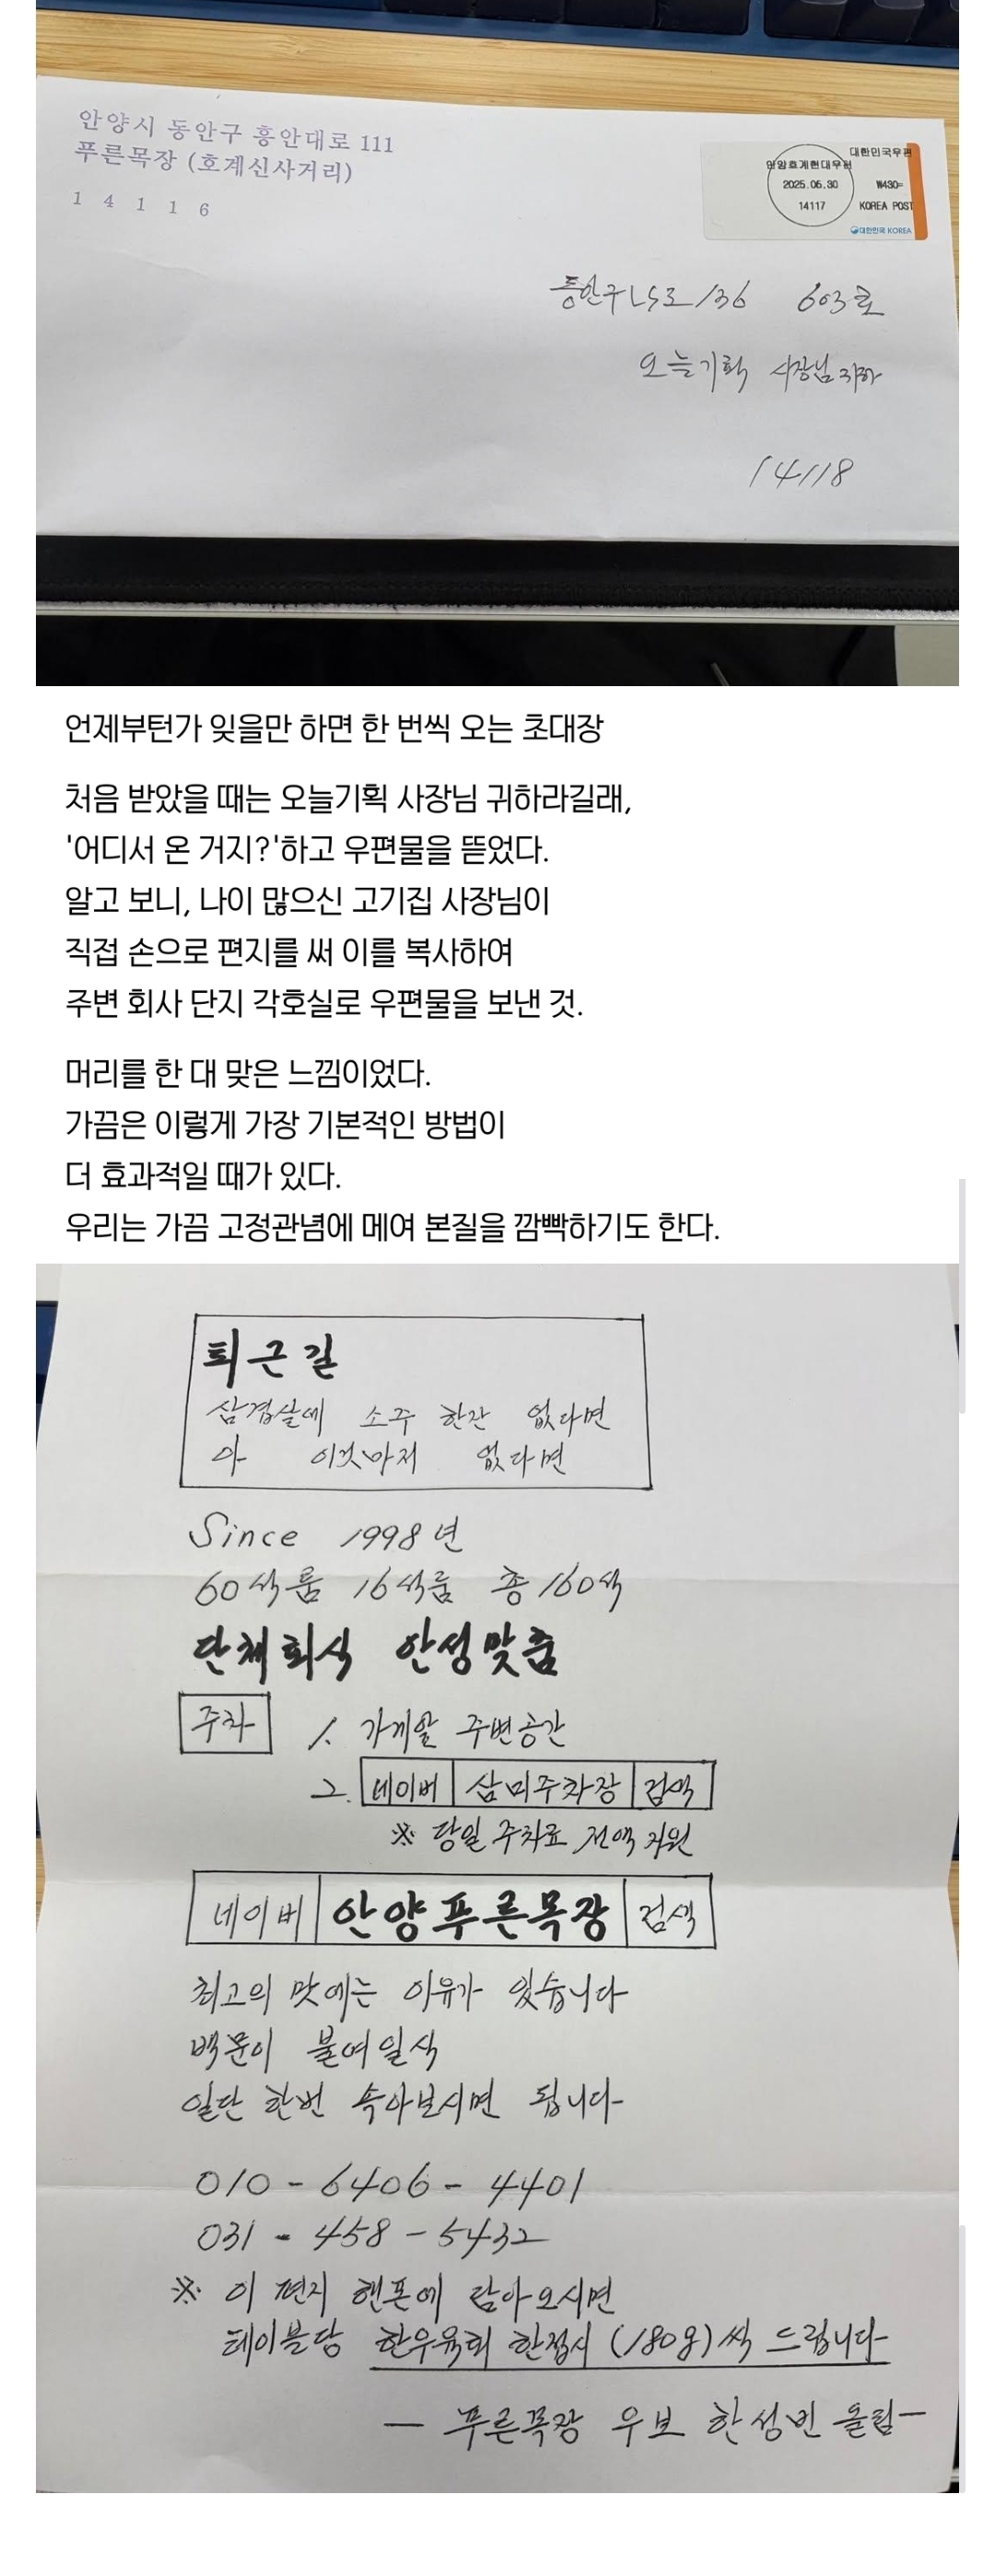 안양시 동안구 흥안대로 111
푸른목장 (호계신사거리)
1 4 1 1 6
대한민국우편
안양호계현대우편
2025.06.30
₩430=
14117
KOREA POST
대한민국 KOREA
동안구 LS로 136 603호
오늘기획 사장님 귀하
14118
언제부턴가 잊을만 하면 한 번씩 오는 초대장
처음 받았을 때는 오늘기획 사장님 귀하라길래,
'어디서 온 거지?'하고 우편물을 뜯었다.
알고 보니, 나이 많으신 고기집 사장님이
직접 손으로 편지를 써 이를 복사하여
주변 회사 단지 각호실로 우편물을 보낸 것.
머리를 한 대 맞은 느낌이었다.
가끔은 이렇게 가장 기본적인 방법이
더 효과적일 때가 있다.
우리는 가끔 고정관념에 메여 본질을 깜빡하기도 한다.
퇴근길
삼겹살에 소주 한잔 없다면
아 이것마저 없다면
Since 1998년
60석룸 16석룸 총 160석
단체회식 안성맞춤
주차 1. 가게앞 주변공간
2. 네이버 삼미주차장 검색
※ 당일 주차료 전액 지원
네이버 안양푸른목장 검색
최고의 맛에는 이유가 있습니다
백문이 불여일식
일단 한번 속아보시면 됩니다
010 - 6406 - 4401
031 - 458 - 5432
※ 이 편지 핸폰에 담아오시면
테이블당 한우육회 한접시 (180g)씩 드립니다
― 푸른목장 우보 한성빈 올림 ―